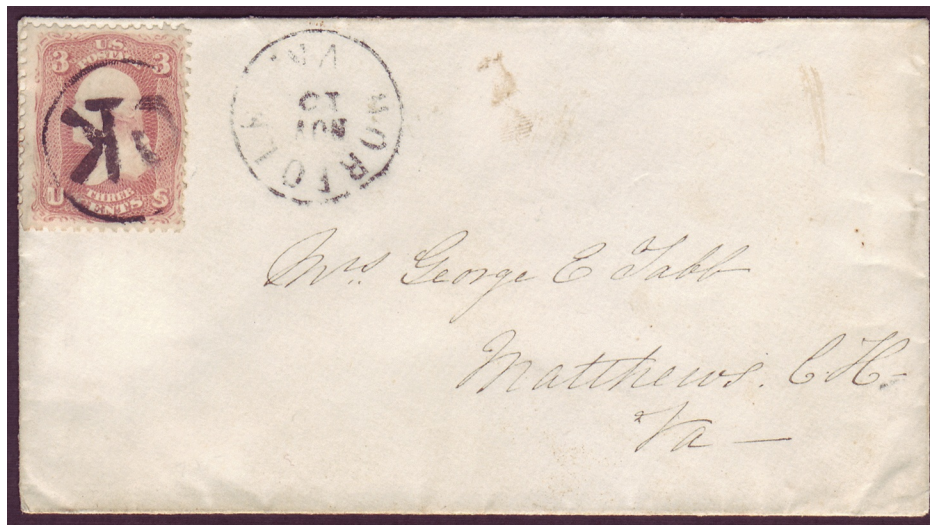 3 U.S. POSTAGE 3
U THREE CENTS S
NORFOLK VA.
NOV
Mrs. George E Tabb
Matthews. C. H-
Va —